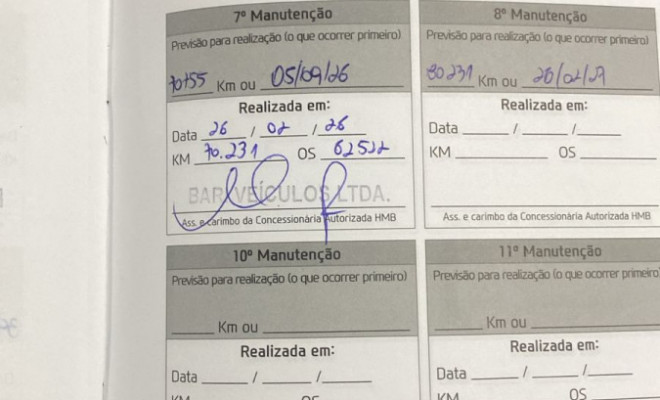 7º Manutenção
Previsão para realização (o que ocorrer primeiro)
70755 Km ou 05/09/26
Realizada em:
Data 26 / 02 / 26
KM 70.231 OS 62522
BAR VEÍCULOS LTDA.
Ass. e carimbo da Concessionária Autorizada HMB
8º Manutenção
Previsão para realização (o que ocorrer primeiro)
80231 Km ou 26/02/27
Realizada em:
Data / /
KM OS
Ass. e carimbo da Concessionária Autorizada HMB
10º Manutenção
Previsão para realização (o que ocorrer primeiro)
Km ou
Realizada em:
Data / /
KM OS
11º Manutenção
Previsão para realização (o que ocorrer primeiro
Km ou
Realizada em:
Data / /
KM OS